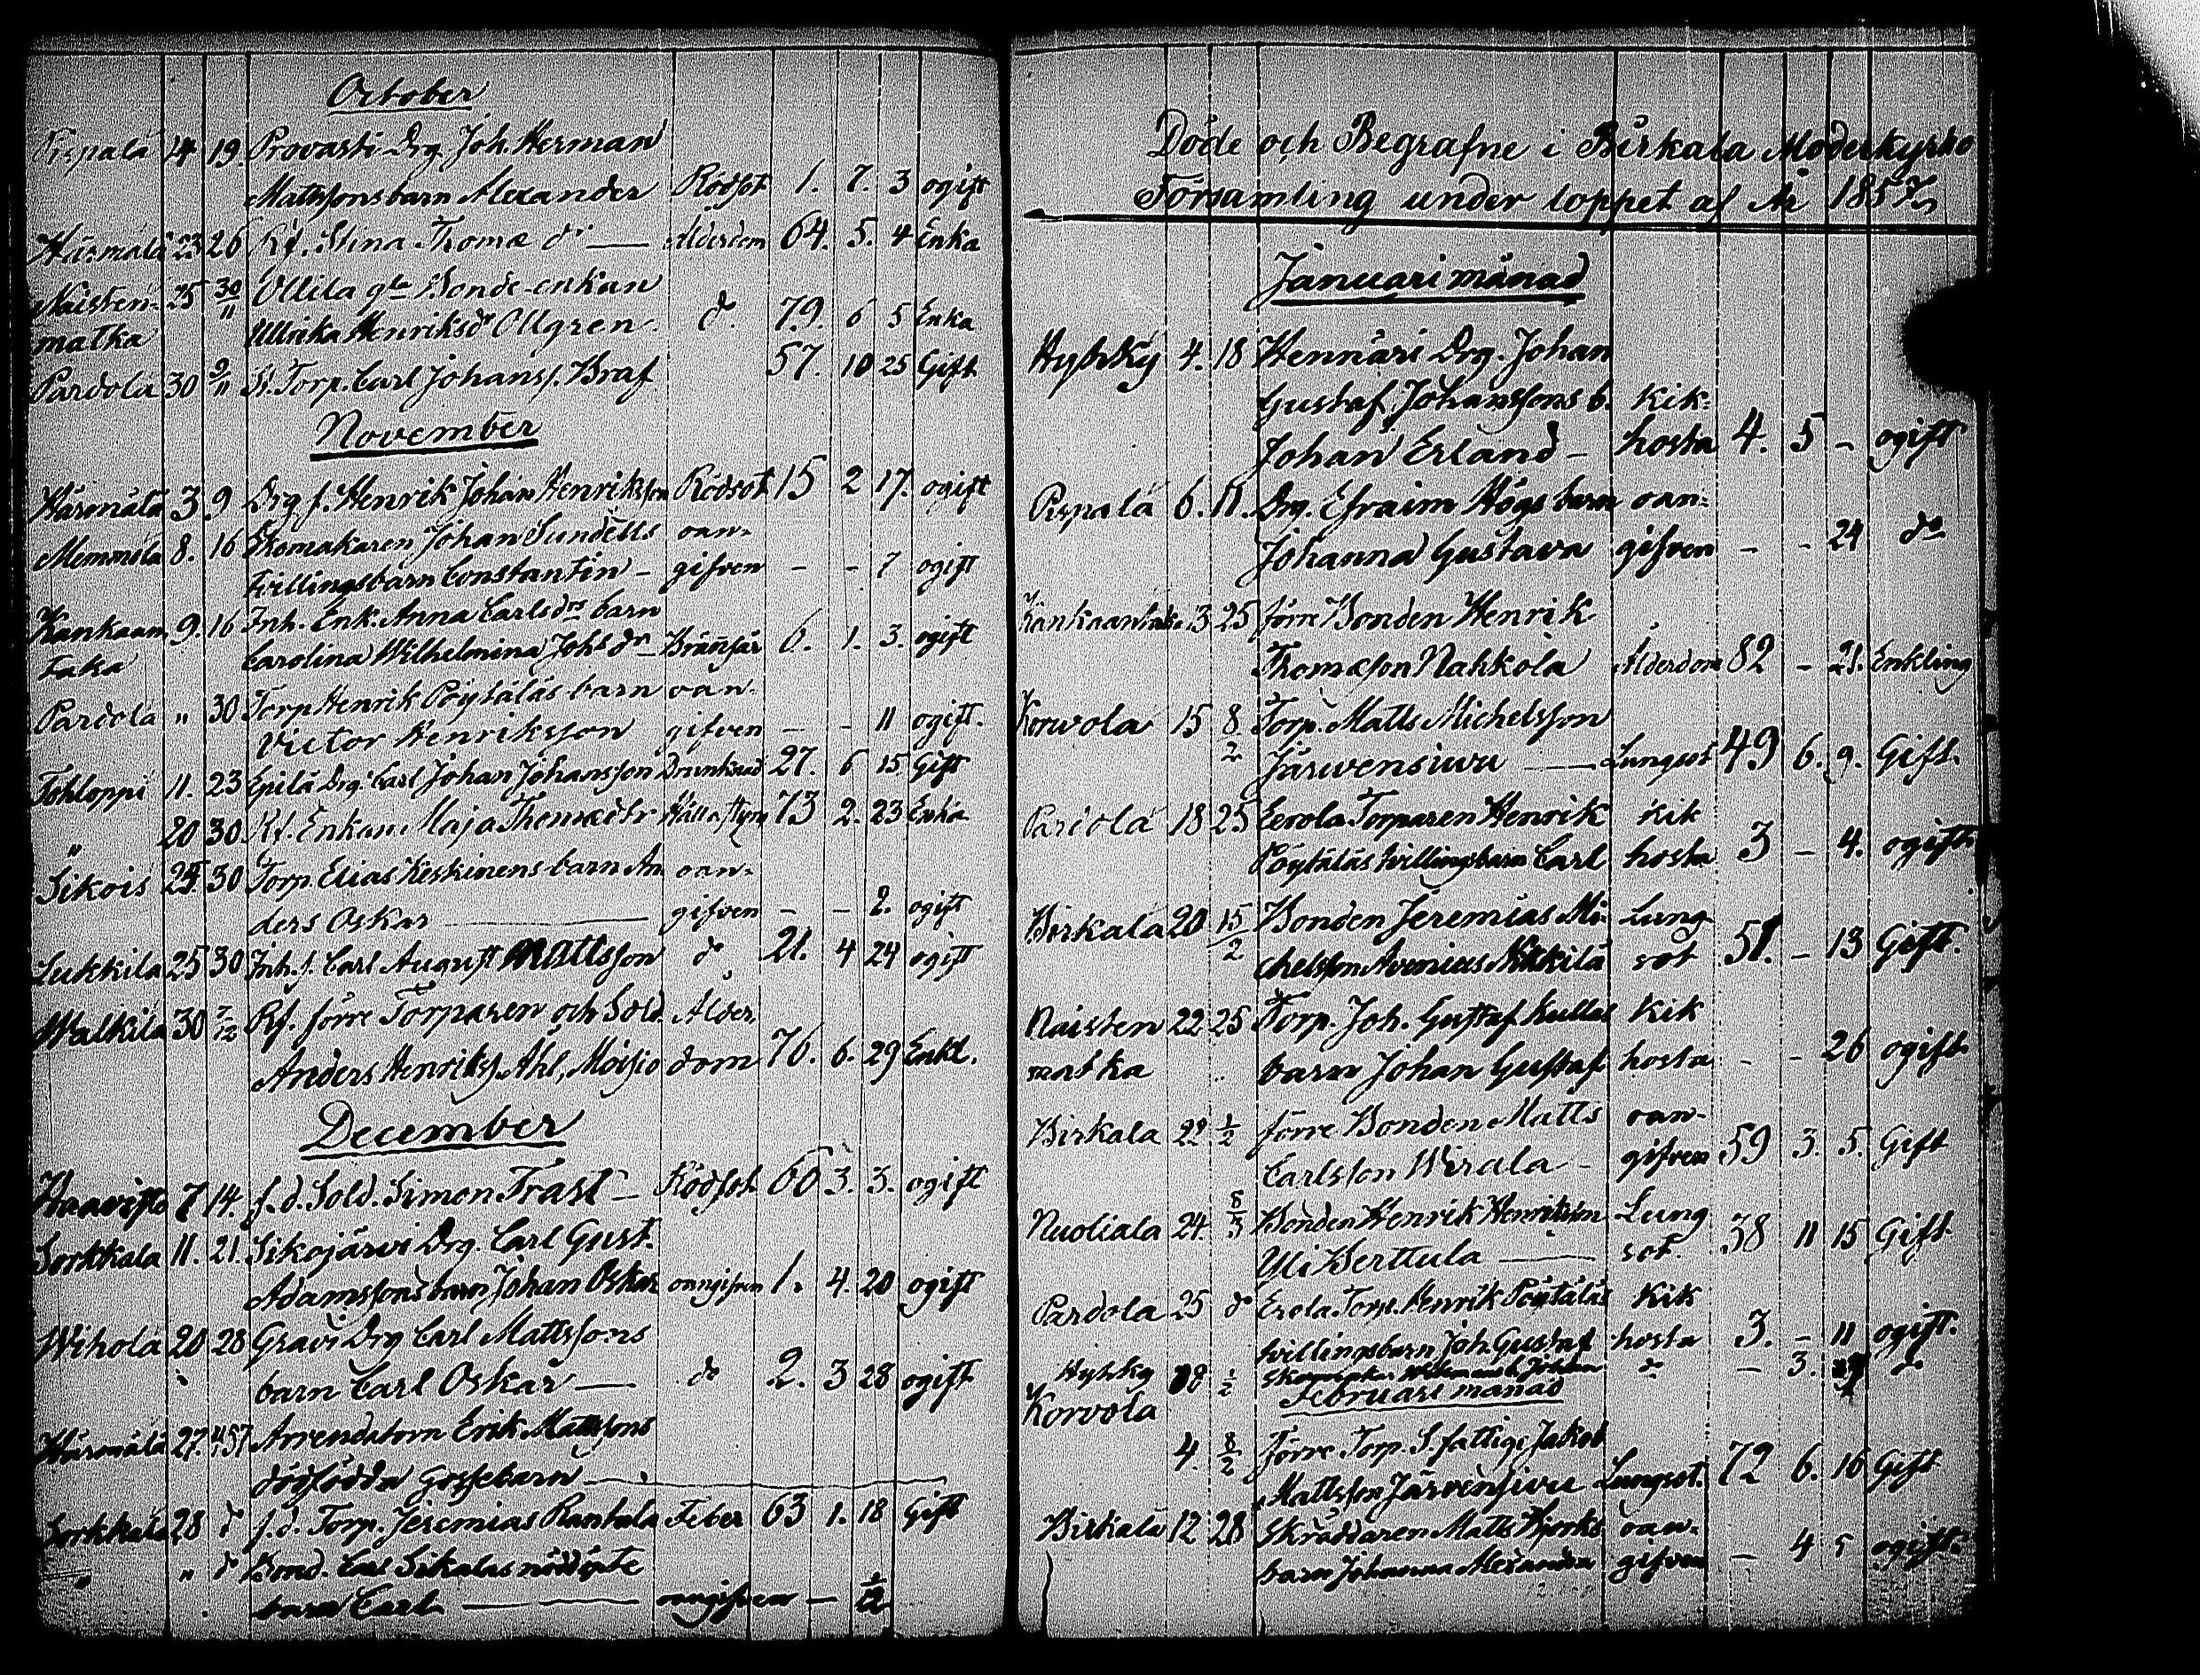 October
Pispala 14 19 Provasti Drg. Joh. Herman
Mattssons barn Alexander Rödsot 1. 7. 3 ogift
Härmälä 23 26 Rf. Stina Thomæ dr — Ålderdom 64. 5. 4 Enka
Naisten- 25 30/11 Ollila gla Bonde-enkan
matka Ullrika Henriksdr Ollgren do 79. 6 5 Enka
Pardola 30 9/11 St. Torp. Carl Johanss. Braf 57. 10 25 Gift
November
Härmälä 3 9 Drg f. Henrik Johan Henriksson Rödsot 15 2 17. ogift
Memmola 8. 16 Skomakaren Johan Sundells oan-
tvillingsbarn Constantin – gifven - - 7 ogift
Kankaan 9. 16 Inh. Enk. Anna Carlsdrs barn
taka Carolina Wilhelmina Johsdr – Brännsår 6. 1. 3. ogift
Pardola " 30 Torp Henrik Pöytäläs barn oan-
Victor Henriksson gifven - - 11 ogift.
Tohloppi 11. 23 Epilä Drg. Carl Johan Johansson Drunknad 27. 6 15 Gift
" 20 30 Rf. Enkan Maja Thomædotr Håll o styng 73 2. 23 Enka
Sikois 24 30 Torp. Elias Keskinens barn An oan-
ders Oskar — gifven - - 2. ogift
Lukkila 25 30 Inh. f. Carl August Mattsson do 21. 4 24 ogift
Walkila 30 7/12 Rf. förre Torparen och Sold. Ålder
Anders Henrikss. Ahl, Moisio dom 76. 6. 29 Enkl.
December
Haavisto 7 14. f. d. Sold. Simon Trast – Rödsot 60 3. 3. ogift
Sorkkala 11. 21. Sikojärvi Drg. Carl Gust.
Adamssons barn Johan Oskar oangifven 1. 4. 20 ogift
Wihola 20 28 Gravi Drg Carl Mattssons
barn Carl Oskar — do 2. 3 28 ogift
Härmälä 27. 4/1 57 Arrendatorn Erik Mattssons
dödfödda gossebarn —
Sorkkala 28 do f. d. Torp. Jeremias Rantala Feber 63 1. 18 Gift
" " do Bond. Carl Sikalas nöddöpte
barn Carl — oangifven – 1/12
Döde och Begrafne i Birkala Moderkyrko
Församling under loppet af År 1857.
Januari månad
Hyhky 4. 18 Hennäri Drg. Johan
Gustaf Johanssons b. Kik-
Johan Erland – hosta 4. 5 – ogift
Pispala 6. 11. Drg. Efraim Högs barn oan-
Johanna Gustava gifven - - 24 do
Kankaantaka 13 25 förre Bonden Henrik
Thomasson Nahkola Ålderdom 82 – 21. Enkling
Korvola 15 8/2 Torp. Matts Michelsson
Järwensiwu — Lungsot 49 6. 9. Gift.
Pardola 18 25 Eerola Torparen Henrik Kik
Pöytäläs tvillingsbarn Carl hosta 3 – 4. ogift
Birkala 20 15/2 Bonden Jeremias Mi- Lung
chelsson Avenius Kikkilä sot 51. – 13 Gift.
Naisten 22 25 Torp. Joh. Gustaf Kullas Kik
matka barn Johan Gustaf hosta - - 26 ogift
Birkala 22 1/2 förre Bonden Matts oan-
Carlsson Wirala – gifven 59 3. 5. Gift
Nuoliala 24. 8/3 Bonden Henrik Henriksson Lung
Yli Berttula — sot. 38 11 15 Gift
Pardola 25 do Erola Torp. Henrik Pöytäläs Kik
tvillingsbarn Joh. Gustaf hosta 3. – 11 ogift.
Hyhky 1/2 do – 3. do
Februari manad
Korvola 4. 8/2 Förre Torp. S. fattige Jakob
Mattsson Järvensivu Lungsot. 72 6. 16 Gift
Birkala 12 28 Skräddaren Matts Bjorks oan-
barn Johanna Alexandra gifven — 4 5 ogift.